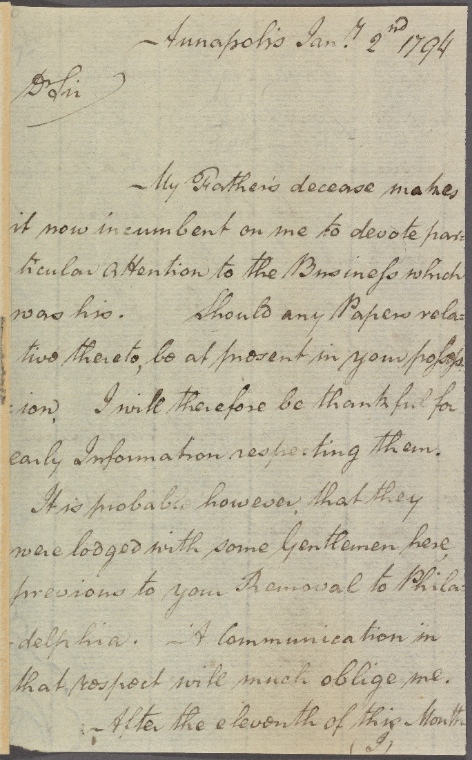 Annapolis Jany. 2nd 1794
Dr Sir
My Father's decease makes
it now incumbent on me to devote par=
ticular attention to the Business which
was his. Should any Papers rela=
tive thereto, be at present in your possess
=ion, I will therefore be thankful for
early Information respecting them.
It is probable however, that they
were lodged with some Gentlemen here,
previous to your Removal to Phila=
=delphia. A Communication in
that respect will much oblige me.
After the eleventh of this Month
(I)